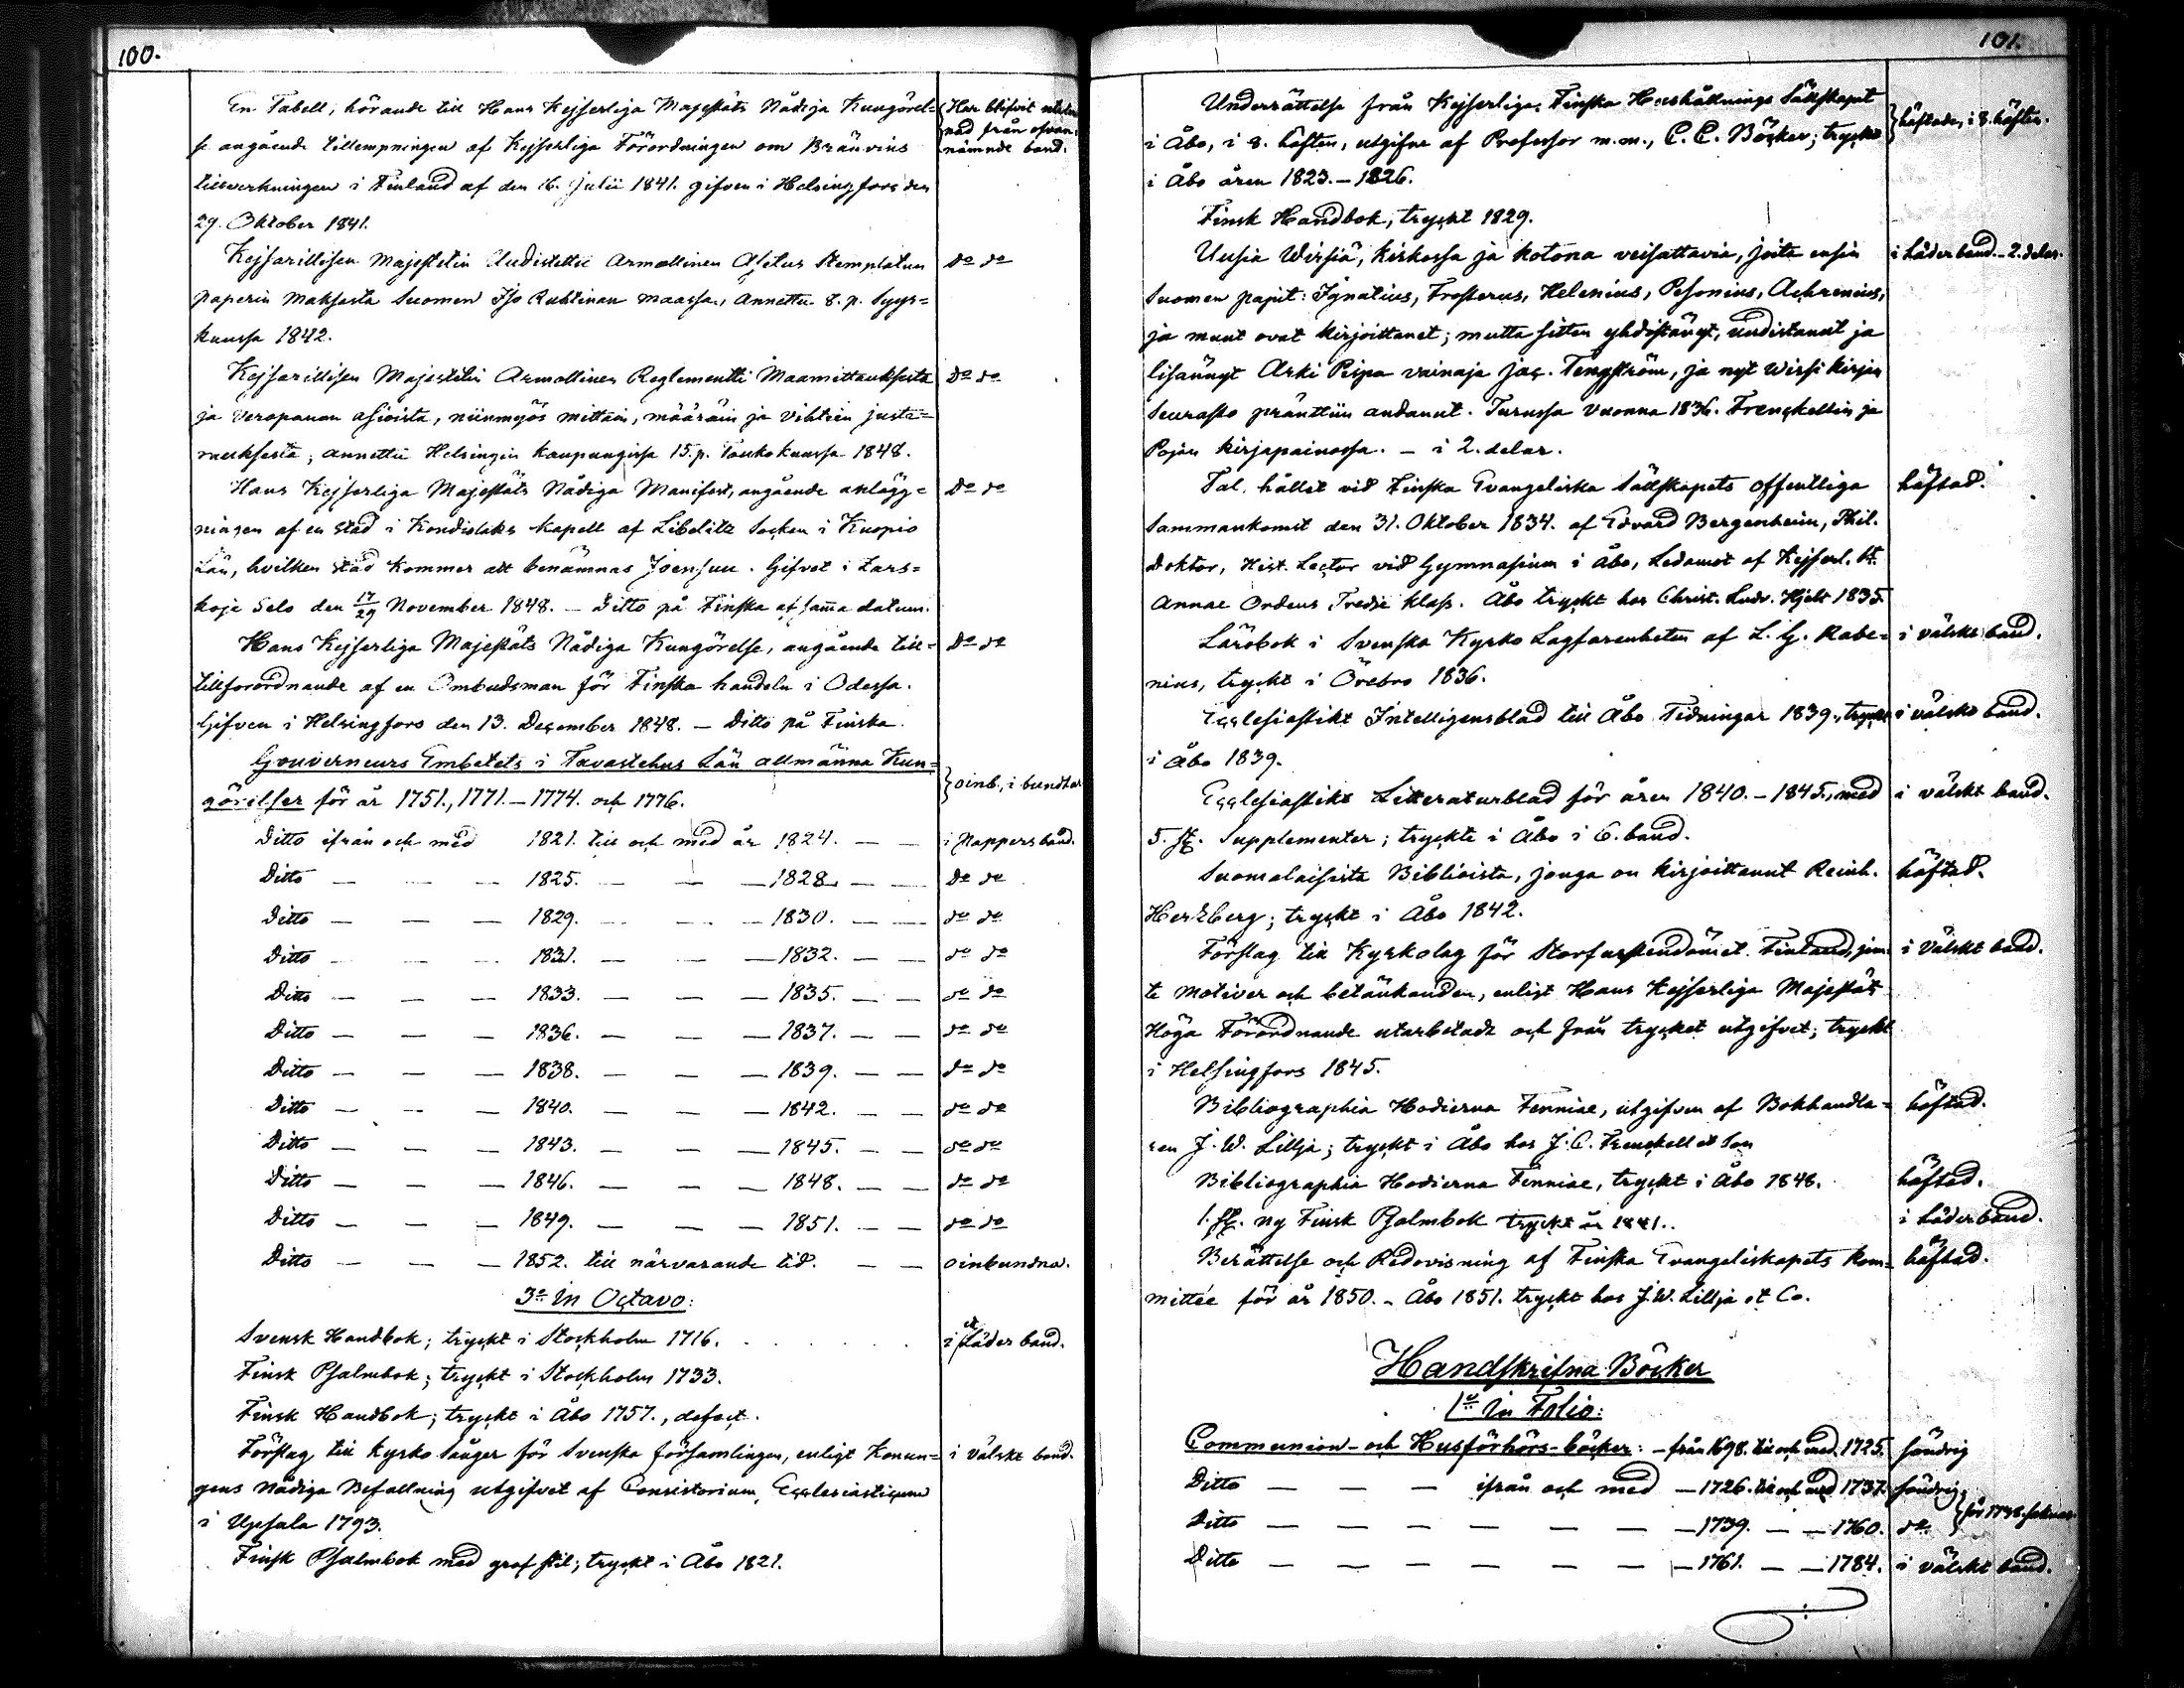 100.
En Tabell, hörande till Hans Kejserliga Majestäts Nådiga Kungörel=
se angående tillempningen af Kejserliga Förordningen om Bränvins
tillverkningen i Finland af den 16. Julii 1841. gifven i Helsingfors den
29. Oktober 1841.
Har blifvit
nad från ofvan=
nämnde band.
Kejsarillisen Majestetin Uudistettu Armollinen Asetus Stemplatun
do do
paperin maksosta Suomen Iso Ruhtinan maassa, Annettu 8. p. Syys=
kuussa 1842.
Kejsarillisen Majestetin Armollinen Reglementti Maamittauksesta
do do
ja Veropanon asioista, niinmyös mittain, määräin ja vihtein juste=
rauksesta; annettu Helsingin kaupungissa 15. p. Toukokuussa 1848.
Hans Kejserliga Majestäts Nådiga Manifest, angående anlägg=
do do
ningen af en stad i Kondiolaks Kapell af Libelitz Socken i Kuopio
Län, hvilken stad kommer att benämnas Joensuu. Gifvet i Zars=
koje Selo den 17/29 November 1848. — Ditto på Finska af samma datum.
Hans Kejserliga Majestäts Nådiga Kungörelse, angående till=
do do
tillforordnande af en Ombudsman för Finska handeln i Odessa.
Gifven i Helsingfors den 13. December 1848. — Ditto på Finska.
Gouverneurs Embetets i Tavastehus Län allmänna Kun=
görelser för år 1751., 1771.—1774. och 1776.
oinb., i bundtar
Ditto ifrån och med 1821. till och med år 1824. — — i Pappersband.
Ditto — — — 1825. — — — 1828. — — do do
Ditto — — — 1829. — — — 1830. — — do do
Ditto — — — 1831. — — — 1832. — — do do
Ditto — — — 1833. — — — 1835. — — do do
Ditto — — — 1836. — — — 1837. — — do do
Ditto — — — 1838. — — — 1839. — — do do
Ditto — — — 1840. — — — 1842. — — do do
Ditto — — — 1843. — — — 1845. — — do do
Ditto — — — 1846. — — — 1848. — — do do
Ditto — — — 1849. — — — 1851. — — do do
Ditto — — — 1852. till närvarande tid. — — oinbundna.
3o In Octavo:
Svensk Handbok; tryckt i Stockholm 1716. i ett Läder band.
Finsk Psalmbok; tryckt i Stockholm 1733.
Finsk Handbok; tryckt i Åbo 1757., defect.
Förslag till Kyrko Sånger för Svenska församlingen, enligt Konun=
i välskt band.
gens Nådiga Befallning utgifvet af Consistorium Ecclesiasticum
i Upsala 1793.
Finsk Psalmbok med grof stil; tryckt i Åbo 1821.
101.
Underrättelse från Kejserliga Finska Hushållnings Sällskapet
i Åbo, i 8. häften, utgifne af Professor m.m., C. C. Böcker; tryckt
häftade, i 8. häften.
i Åbo åren 1823.—1826.
Finsk Handbok, tryckt 1829.
Uusia Wirsiä, kirkossa ja kotona veisattavia, joita ensin
i Läder band. – 2. delar.
Suomen papit: Ignatius, Frosterus, Helenius, Pesonius, Achrenius,
ja muut ovat kirjoittanet; mutta sitten yhdistänyt, uudistanut ja
lisännyt Arki Pispa vainaja Jac. Tengström, ja nyt Wirsi kirjan
Seurasto pränttiin andanut. Turussa Vuonna 1836. Frenckellin ja
Pojan kirjapainossa. — i 2. delar.
Tal, hållet vid Finska Evangeliska Sällskapets offentliga
häftad.
Sammankomst den 31. Oktober 1834. af Edvard Bergenheim, Phil.
doktor, Hist. Lector vid Gymnasium i Åbo, Ledamot af Kejserl. St.
Annae Ordens Tredje klass. Åbo tryckt hos Christ. Ludv. Hjelt 1835.
Lärobok i Svenska Kyrko Lagfarenheten af L. G. Rabe=
i välskt band.
nius, tryckt i Örebro 1836.
Ecclesiastikt Intelligensblad till Åbo Tidningar 1839., tryckt
i välskt band.
i Åbo 1839.
Ecclesiastikt Litteraturblad för åren 1840.—1845., med
i välskt band.
5. st. Supplementer; tryckte i Åbo i 6. band.
Suomalaisista Biblioista, jonga on kirjoittanut Reinh.
häftad.
Hertzberg; tryckt i Åbo 1842.
Förslag till Kyrkolag för Storfurstendömet Finland, jem
i Välskt band.
te Motiver och betänkanden, enligt Hans Kejserliga Majestäts
Höga Förordnande utarbetade och från trycket utgifvet; tryckt
i Helsingfors 1845.
Bibliographia Hodierna Fenniae, utgifven af Bokhandla=
häftad.
ren J. W. Lillja; tryckt i Åbo hos J. C. Frenckell et Son
Bibliographia Hodierna Fenniae, tryckt i Åbo 1848.
häftad.
1. st. ny Finsk Psalmbok tryckt år 1841.
i Läderband.
Berättelse och Redovisning af Finska Evangeliskapets Kom=
häftad.
mittée för år 1850. – Åbo 1851. tryckt hos J. W. Lillja et Co.
Handskrifna Böcker
1o In Folio:
Communion- och Husförhörs-böcker: – från 1698. till och med. 1725. söndrig
Ditto — — — ifrån och med — 1726. till och med 1737. söndrig
för 1738. saknas.
Ditto — — — — — — — 1739. — — 1760. do
Ditto — — — — — — — 1761. — — 1784. i välskt band.